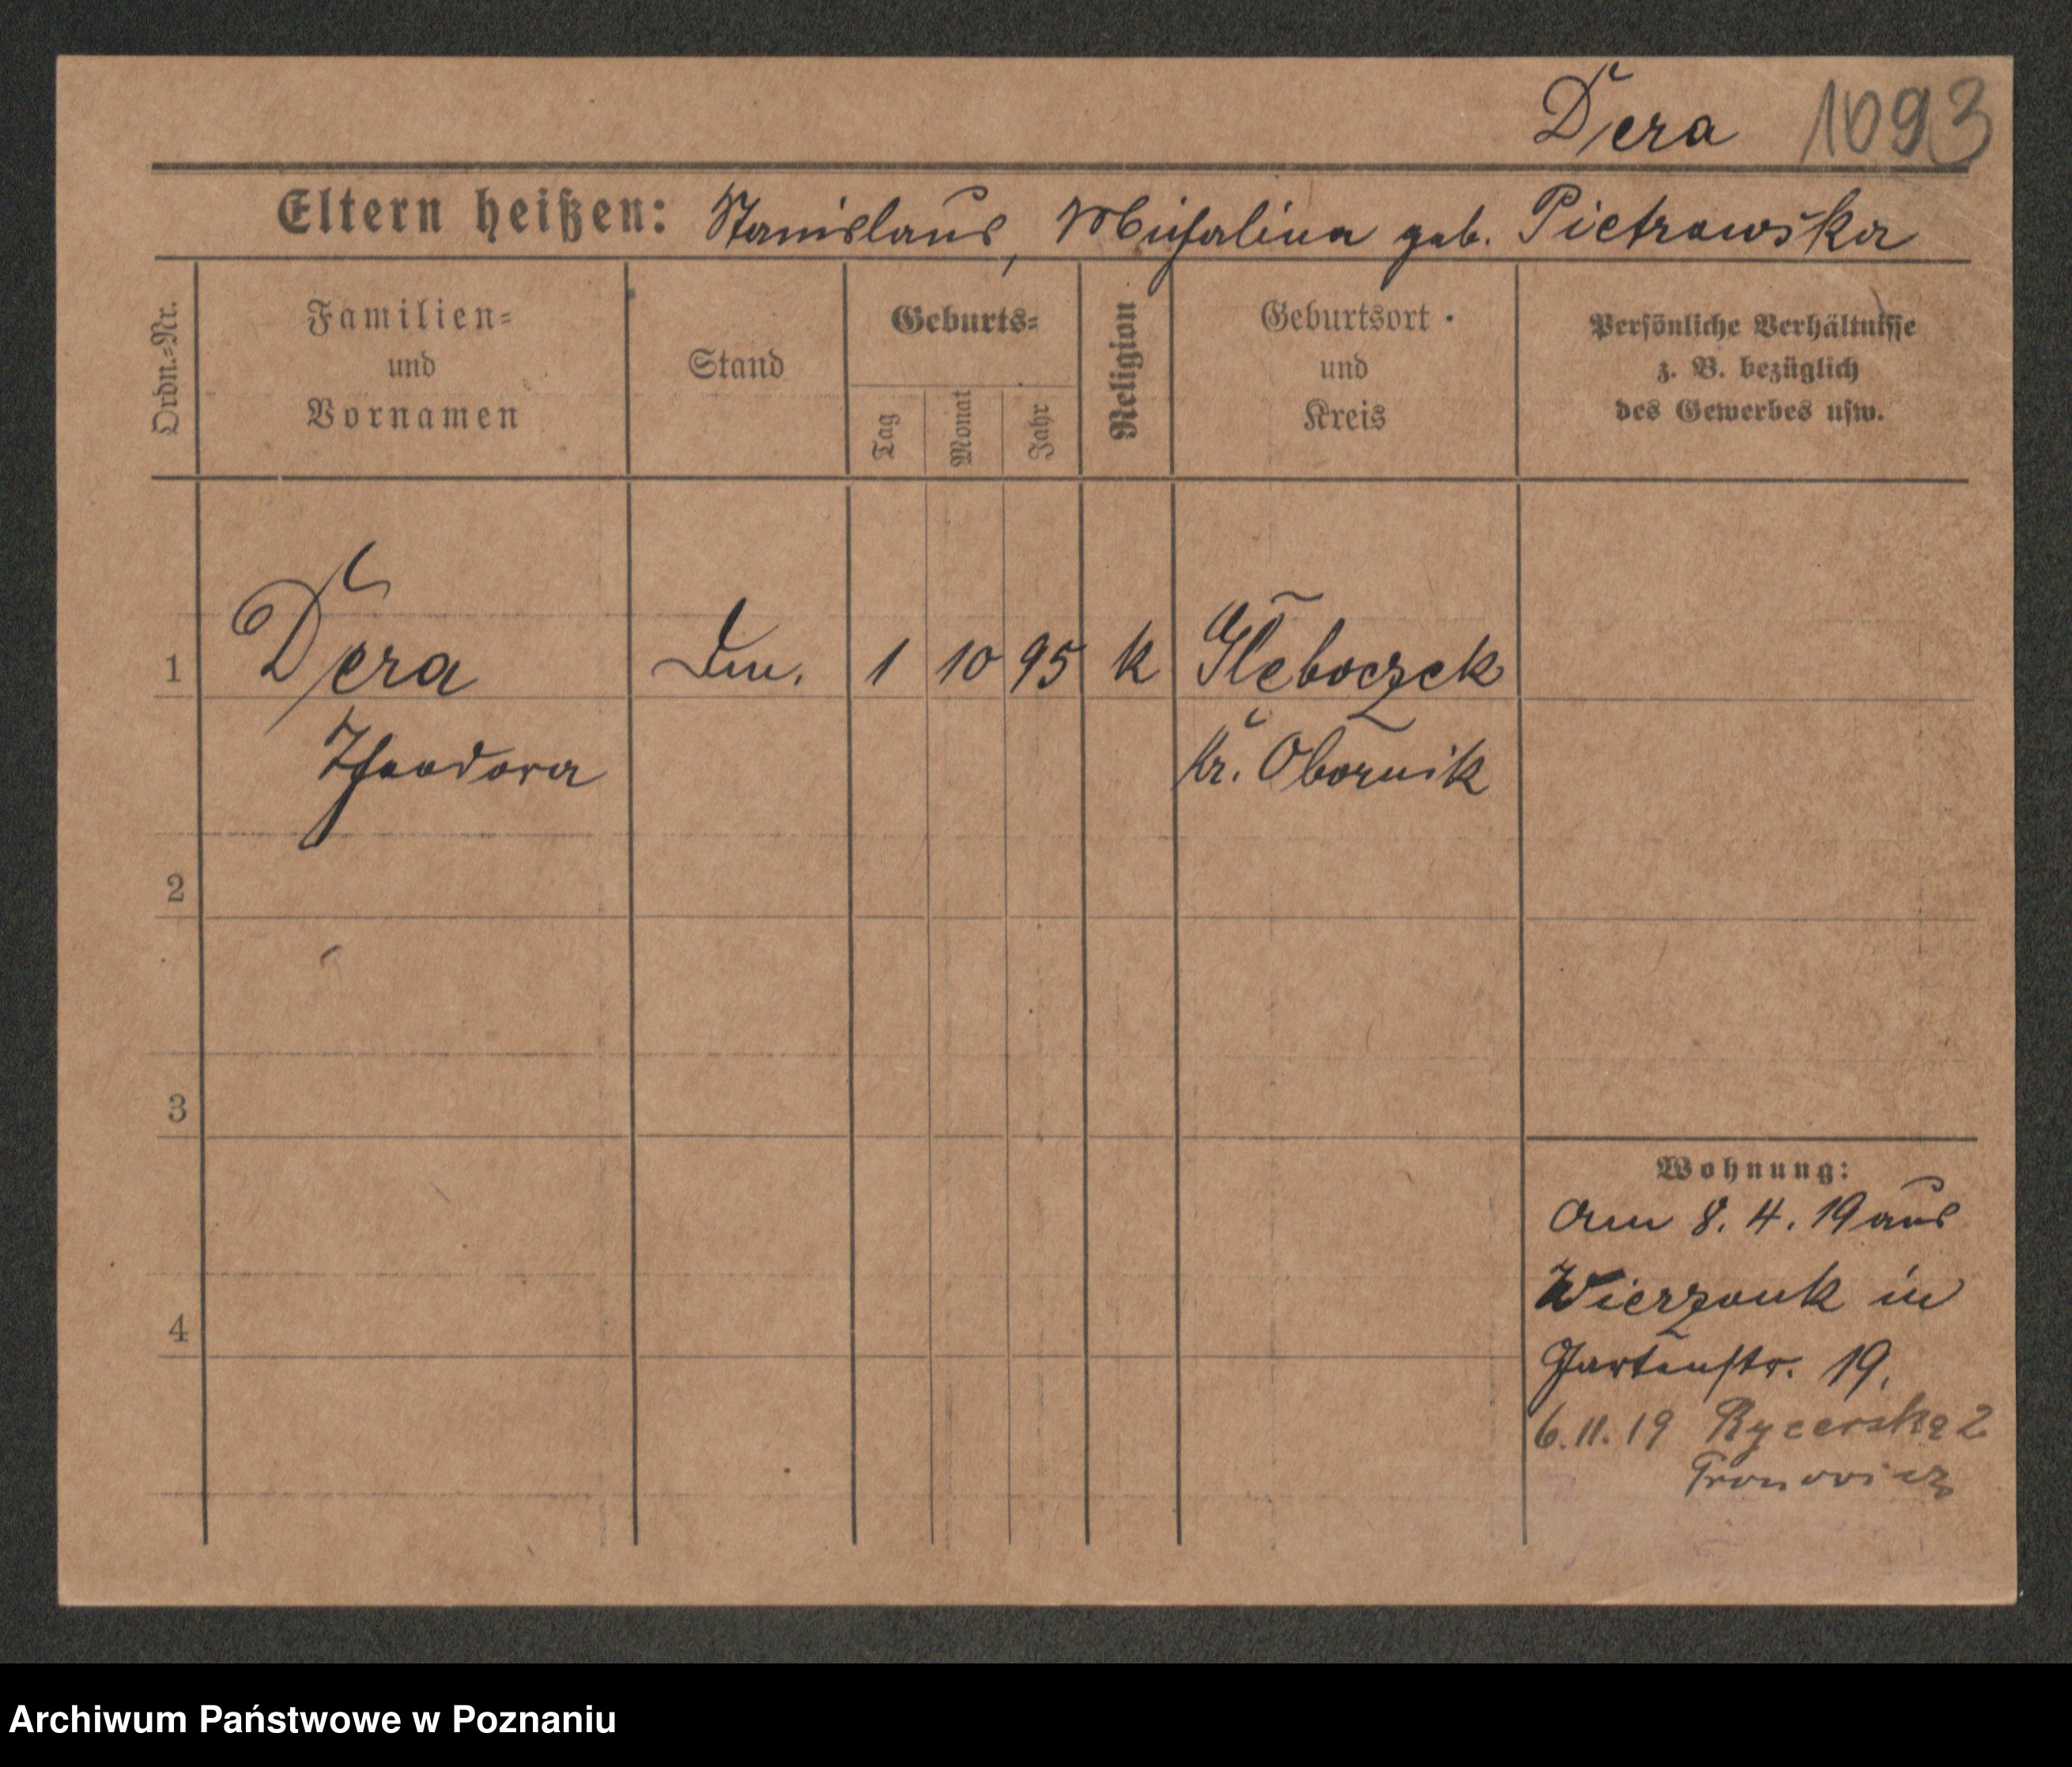 Dera 1093
Eltern heißen: Stanislaus, Michalina geb. Pietrowska
Ordn.=Nr.
Familien=
und
Vornamen
Stand
Geburts=
Tag
Monat
Jahr
Religion
Geburtsort
und
Kreis
Persönliche Verhältnisse
z. B. bezüglich
des Gewerbes usw.
1 Dera 1 10 95 k Gleboczek
Theodora Kr. Obornik
2
3
4
Wohnung:
Am 8. 4. 19 aus
Wierzonk in
Gartenstr. 19.
6.11.19 Rycerska 2
Archiwum Państwowe w Poznaniu